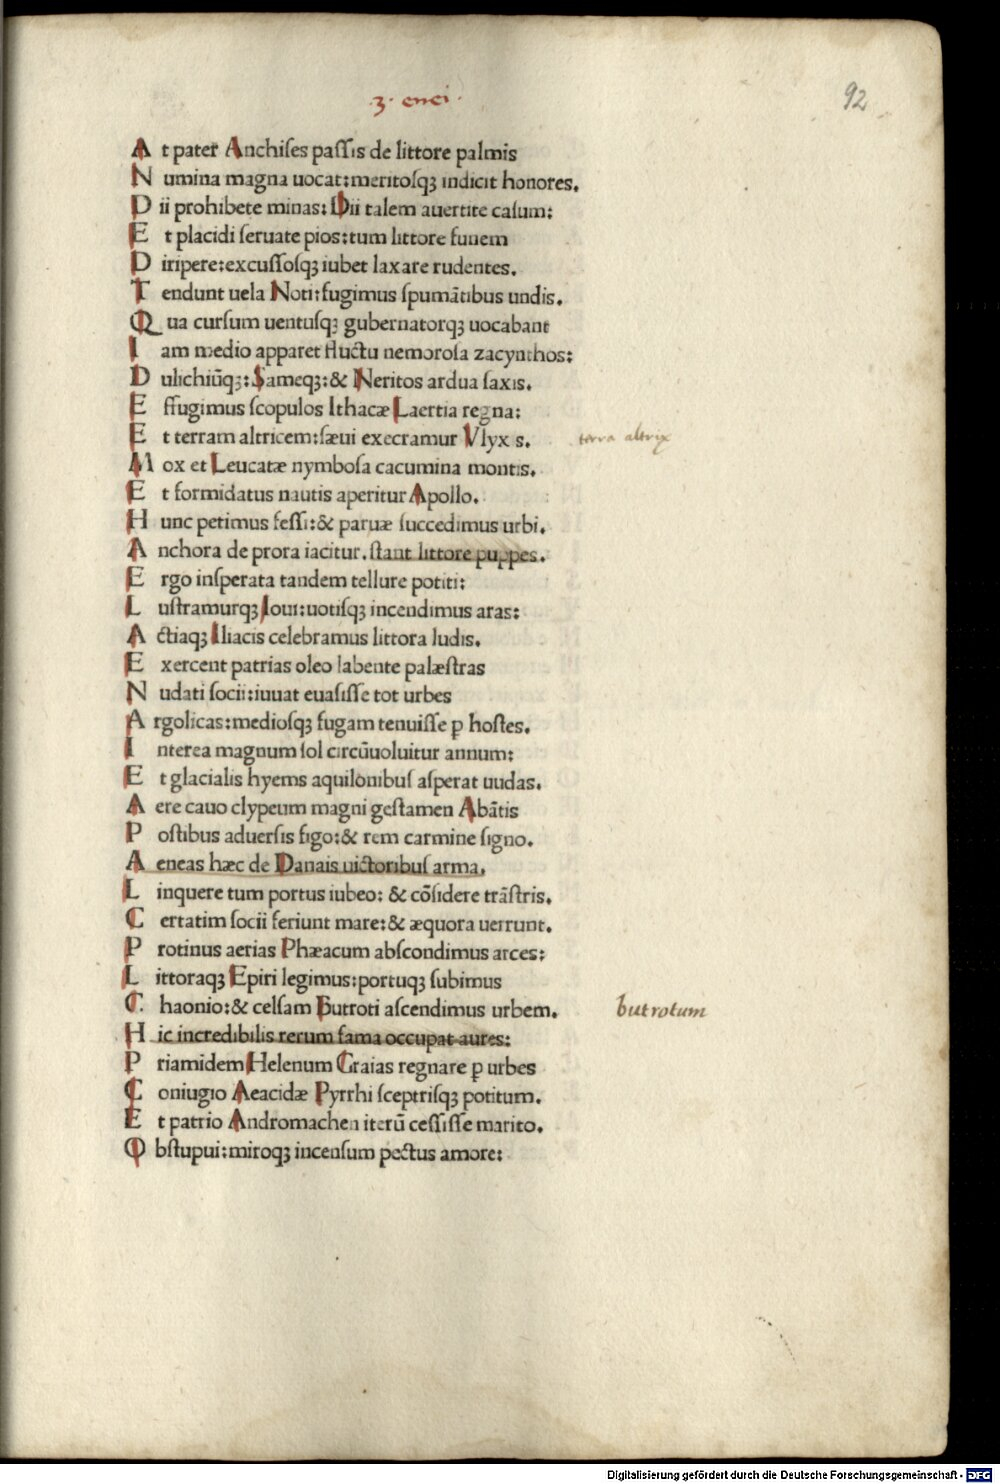 3· enei·
92
At pater Anchiſes paſſis de littore palmis
Numina magna uocat: meritoſqꝫ indicit honores.
Dii prohibete minas: Dii talem auertite caſum:
Et placidi ſeruate pios: tum littore funem
Diripere: excuſſoſqꝫ iubet laxare rudentes.
Tendunt uela Noti: fugimus ſpumãtibus undis.
Qua curſum uentuſqꝫ gubernatorqꝫ uocabant
Iam medio apparet fluctu nemoroſa zacynthos:
Dulichiũqꝫ: Sameqꝫ: & Neritos ardua ſaxis.
Effugimus ſcopulos Ithacæ Laertia regna:
Et terram altricem: ſæui execramur Vlyx s. terra altrix
Mox et Leucatæ nymboſa cacumina montis.
Et formidatus nautis aperitur Apollo.
Hunc petimus feſſi: & paruæ ſuccedimus urbi.
Anchora de prora iacitur. ſtant littore puppes.
Ergo inſperata tandem tellure potiti:
Luſtramurqꝫ Ioui: uotiſqꝫ incendimus aras:
Actiaqꝫ Iliacis celebramus littora ludis.
Exercent patrias oleo labente palæſtras
Nudati ſocii: iuuat euaſiſſe tot urbes
Argolicas: medioſqꝫ fugam tenuiſſe ꝑ hoſtes.
Interea magnum ſol circũuoluitur annum:
Et glacialis hyems aquilonibuſ aſperat uudas.
Aere cauo clypeum magni geſtamen Abãtis
Poſtibus aduerſis figo: & rem carmine ſigno.
Aeneas hæc de Danais uictoribuſ arma.
Linquere tum portus iubeo: & cõſidere trãſtris.
Certatim ſocii feriunt mare: & æquora uerrunt.
Protinus aerias Phæacum abſcondimus arces:
Littoraqꝫ Epiri legimus: portuqꝫ ſubimus
Chaonio: & celſam Butroti aſcendimus urbem. butrotum
Hic incredibilis rerum fama occupat aures:
Priamidem Helenum Graias regnare ꝑ urbes
Coniugio Aeacidæ Pyrrhi ſceptriſqꝫ potitum.
Et patrio Andromachen iterũ ceſſiſſe marito.
Obſtupui: miroqꝫ incenſum pectus amore:
Digitalisierung gefördert durch die Deutsche Forschungsgemeinschaft - DFG